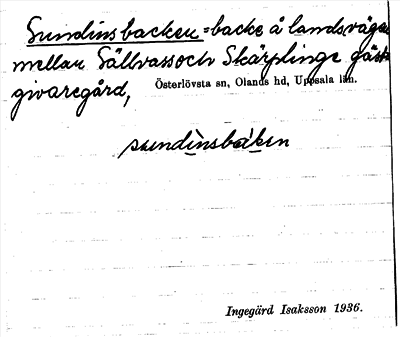 Sundinsbacken = backe å landsvägen
mellan Sällvass och Skärplinge gäst-
givaregård,
Österlövsta sn, Olands hd, Uppsala län.
sundìnsbáken
Ingegärd Isaksson 1936.